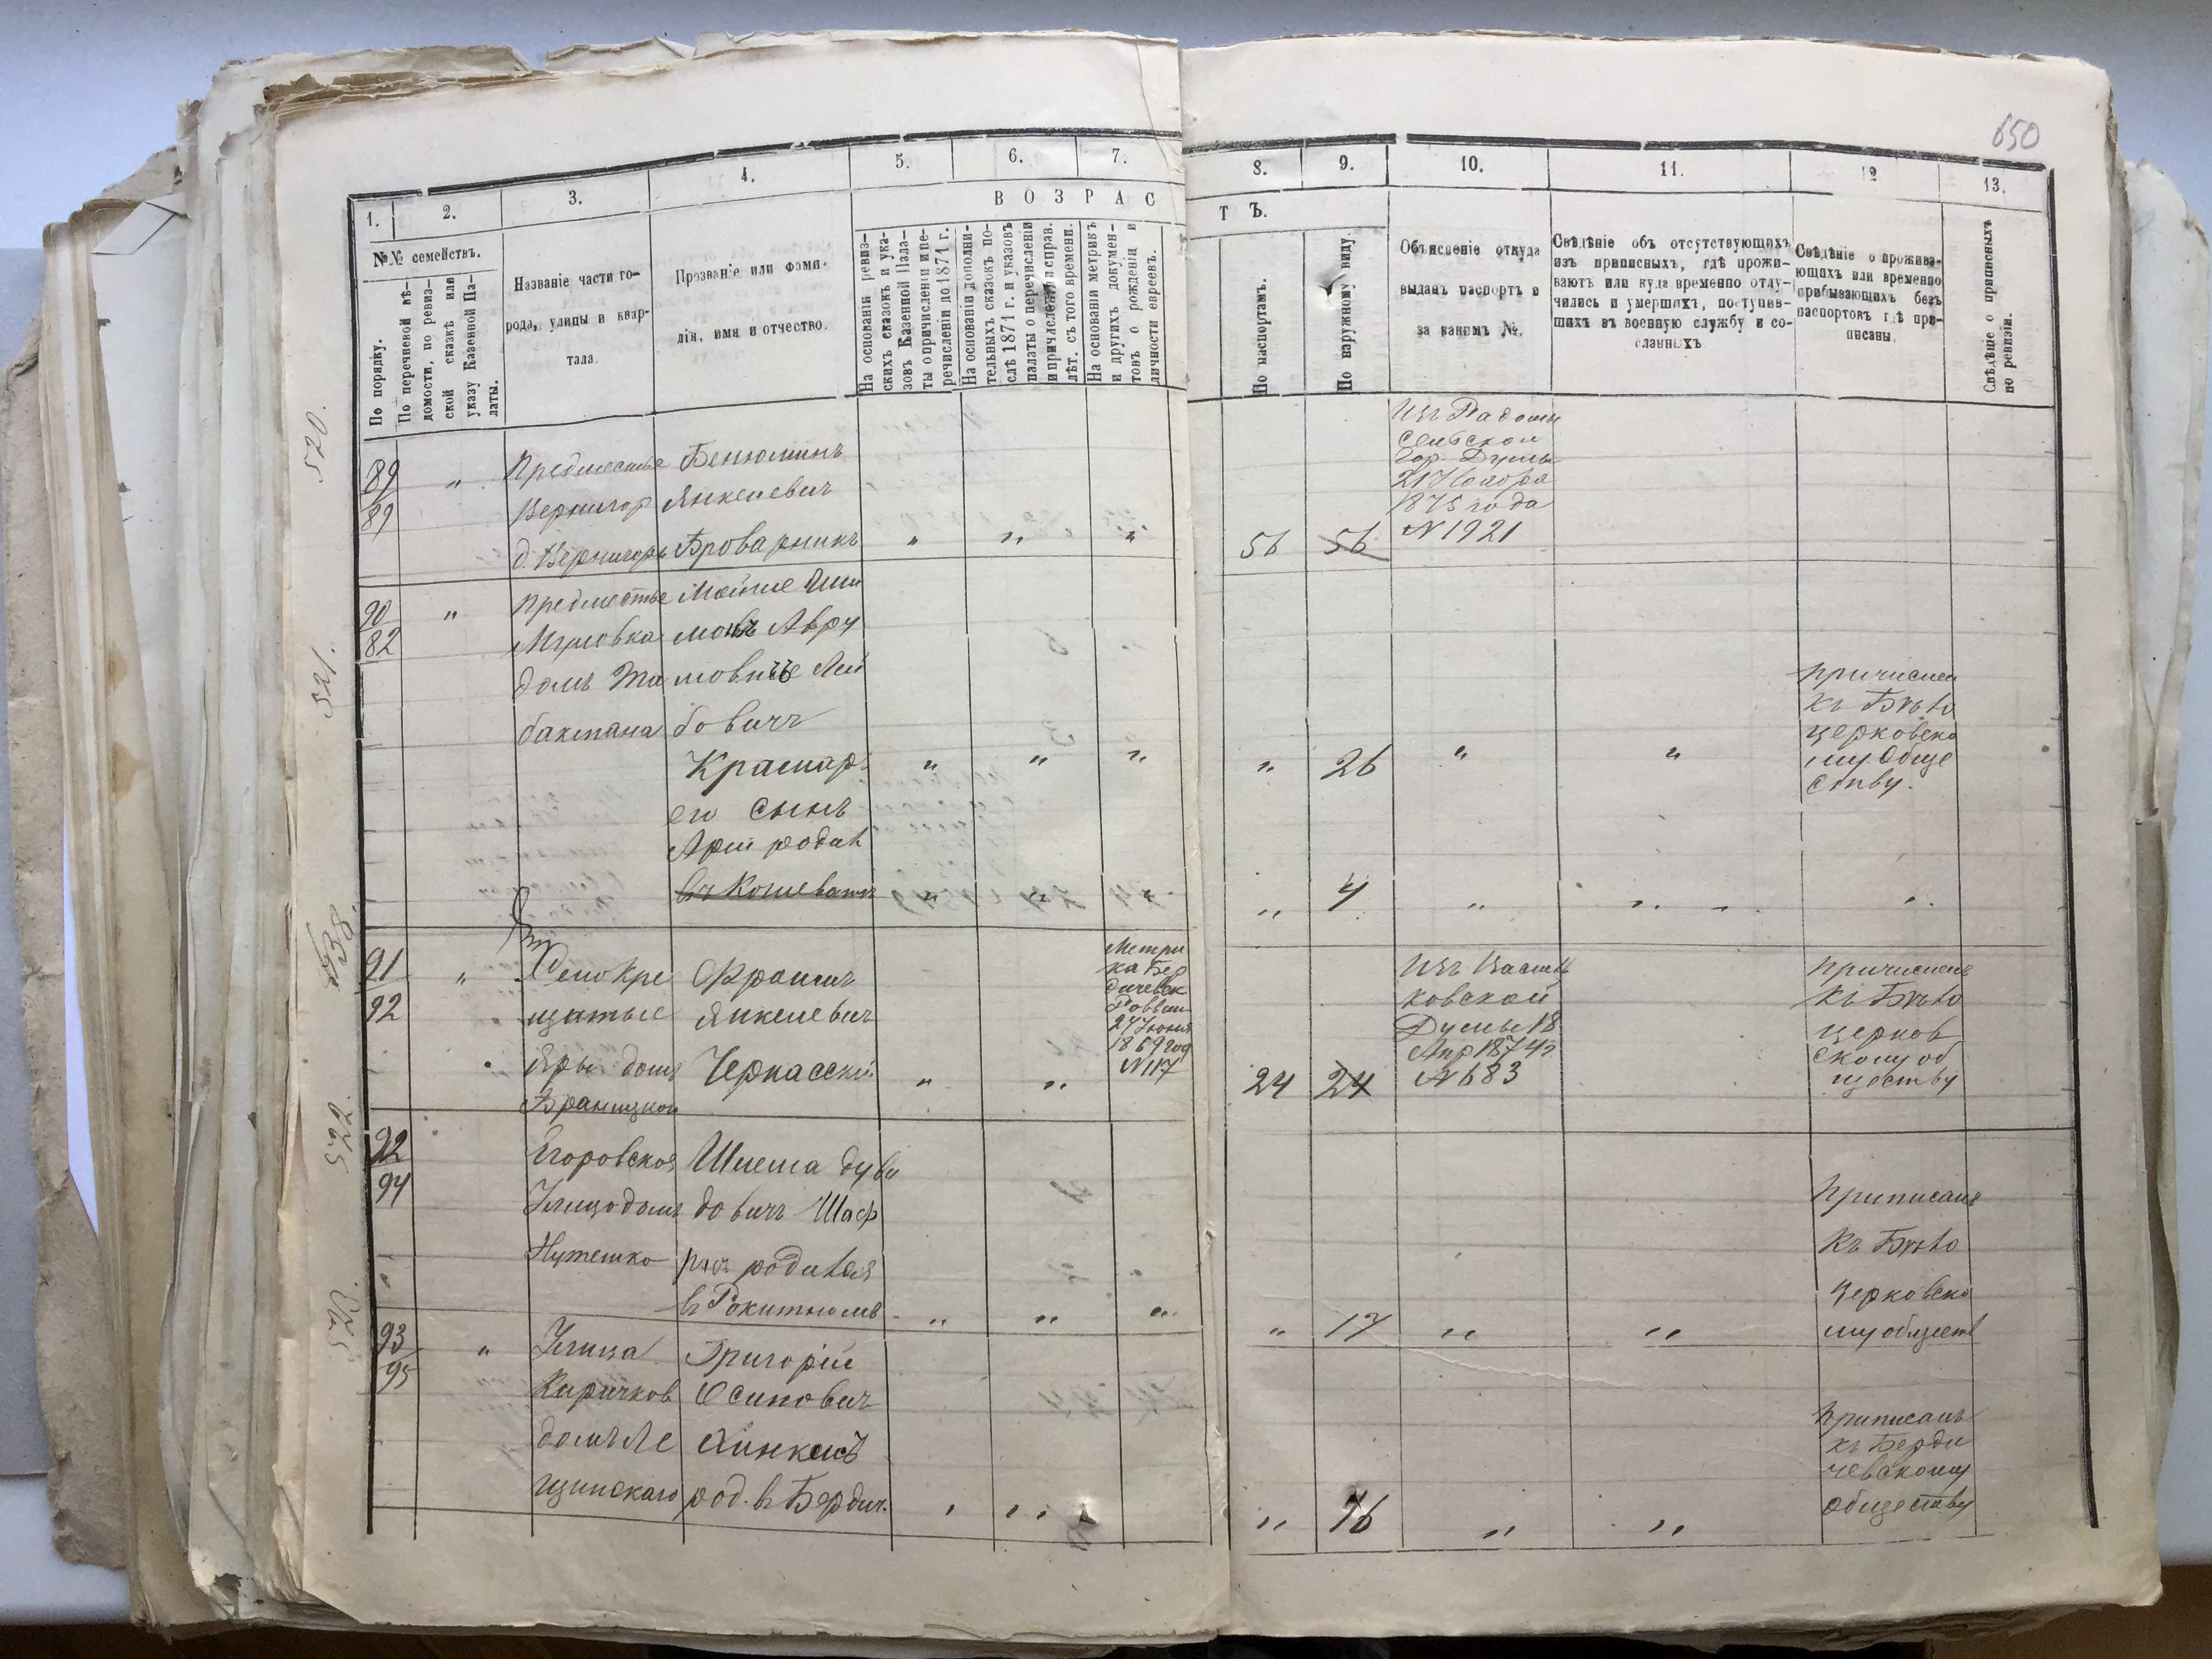 650
1. 2. 3. 4. 5. 6. 7. 8. 9. 10. 11. 12 13.
ВОЗРАСТЪ.
№№ семействъ.
По порядку.
По перечневой вѣ-
домости, по ревиз-
ской сказкѣ или
указу Казенной Па-
латы.
Названіе части го-
рода, улицы и квар-
тала.
Прозваніе или фами-
лія, имя и отчество.
На основаніи ревиз-
скихъ сказокъ и ука-
зовъ Казенной Пала-
ты о причисленіи и пе-
речисленіи до 1871 г.
На основаніи дополни-
тельныхъ сказокъ по-
слѣ 1871 г. и указовъ
палаты о перечисленіи
и причисленіи и справ.
лѣт. съ того времени.
На основаніи метрикъ
и другихъ докумен-
товъ о рожденіи и
личности евреевъ.
По паспортамъ.
По наружному виду.
Объясненіе откуда
выданъ паспортъ и
за какимъ №.
Свѣдѣніе объ отсутствующихъ
изъ приписныхъ, гдѣ прожи-
ваютъ или куда временно отлу-
чились и умершихъ, поступив-
шихъ въ военную службу и со-
сланныхъ
Свѣдѣніе о прожива-
ющихъ или временно
прибывающихъ безъ
паспортовъ гдѣ при-
писаны.
Свѣдѣніе о приписныхъ
по ревизіи.
520.
89
89
"
Предместье
д.
Бенюминъ
Янкелевич
Броварникъ
" " "
56 56
Изъ Радомы
сельской
Гор. Думы
21 Ноября
1875 года
N 1921
521.
90
82
"
Предместье
домъ
Мойше Ши
монъ Авру
мовичъ Лей
бовичъ
Краснар
его сынъ
Арій родив
" " " " 26 " "
причислен
къ Бѣло
церковско
му Обще
ству.
" " " 4 " " "
538.
91
92
"
щатые
Яры домъ
Браницкой
Янкелевич
Черкасскій
" "
Метри
ка Бер
дичевск
Раввин
27 Іюня
1869 год
N 117
24 24
Изъ Василь
ковской
Думы 18
Апр 1874г
N 683
причислен
къ Бѣло
церков
скому об
ществу
522.
92
94
Егоровская
Улица домъ
Шлема Дуви
довичъ Шаф
родился
въ Рокитномъ
" " " " 17 " "
Приписанъ
къ Бѣло
Церковско
му обществ
523.
93
95
"
Улица
домъ Ле
щинскаго
Григорій
Осиповичъ
род. въ Бердич.
" " " 16 " "
Приписанъ
къ Берди
чевскому
обществу